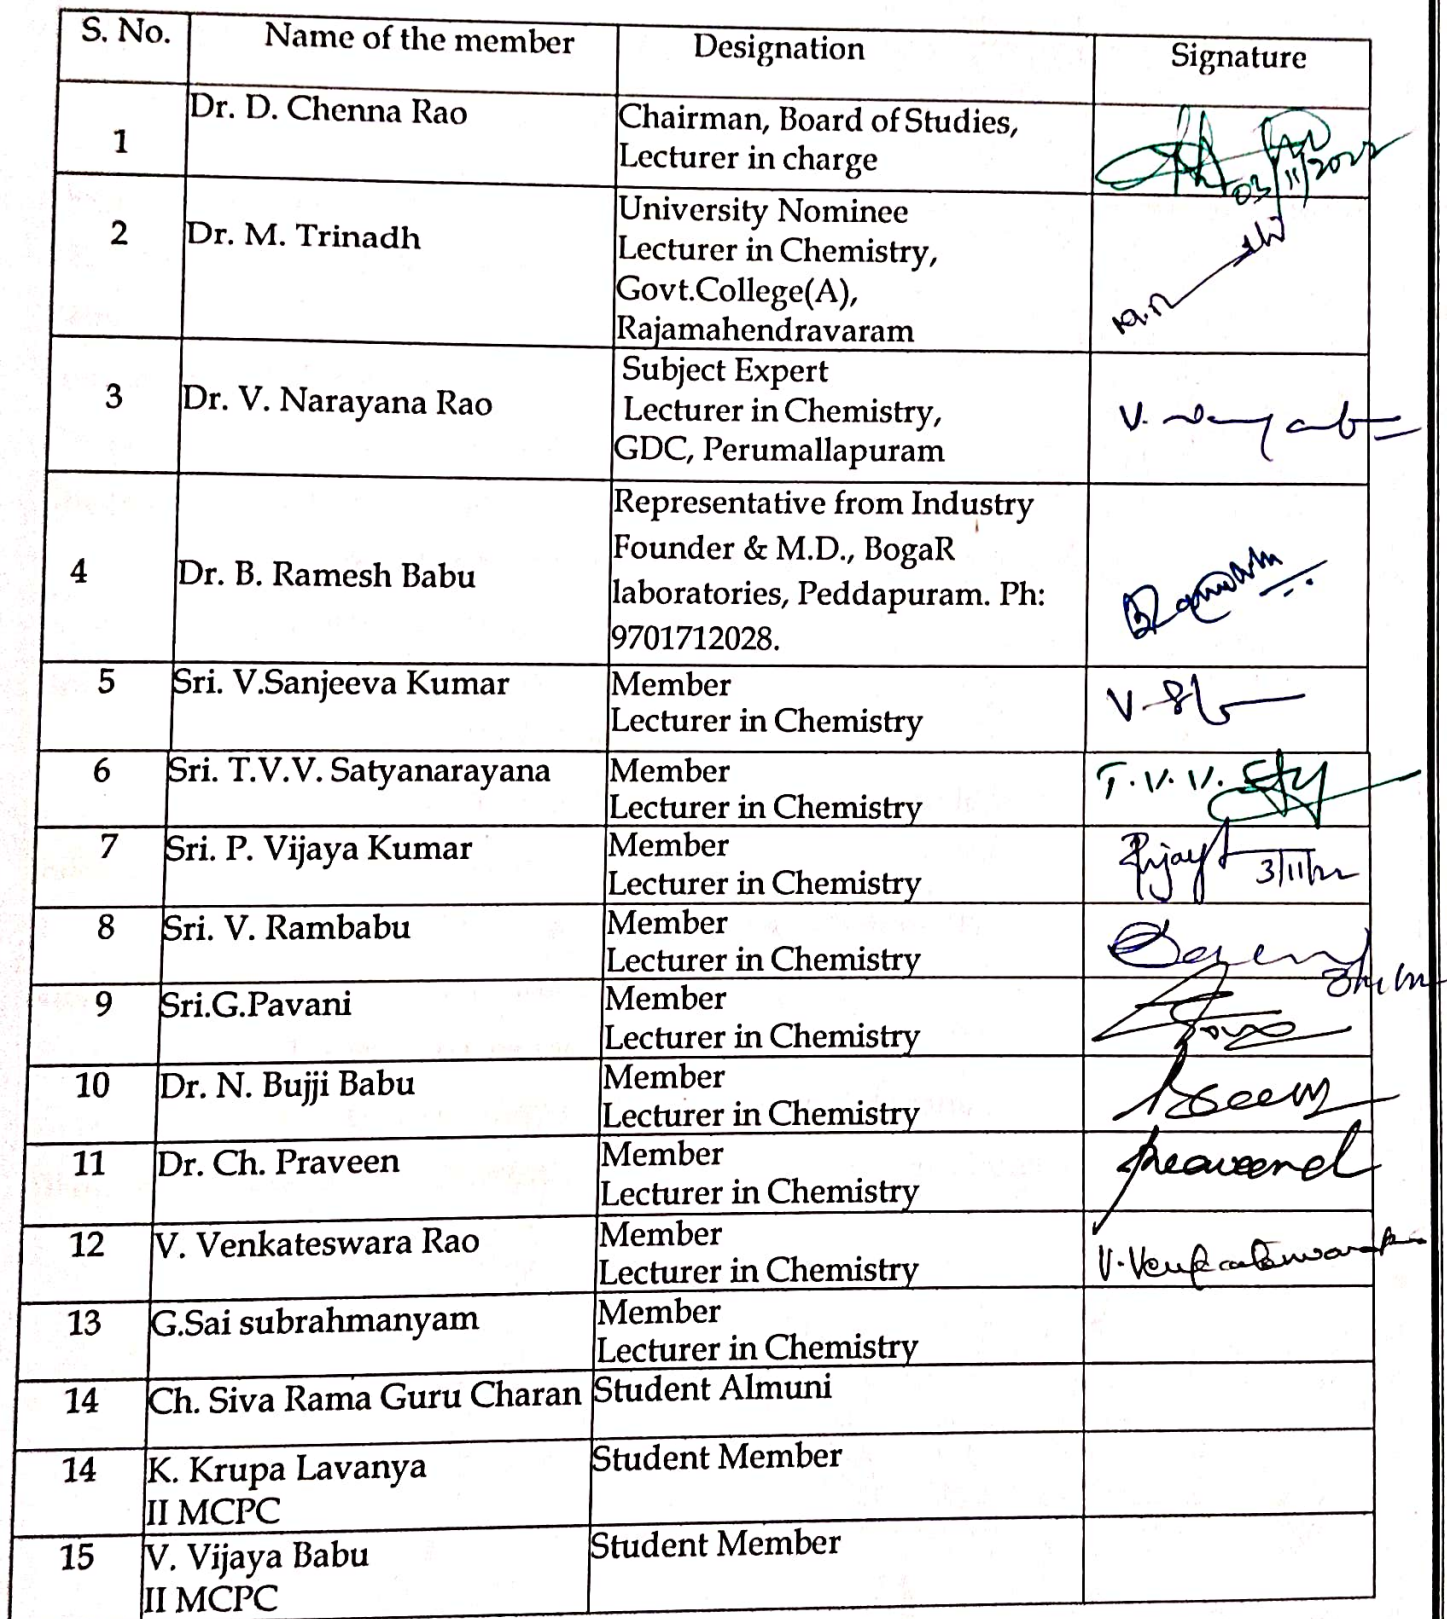 S. No. Name of the member Designation Signature
1 Dr. D. Chenna Rao Chairman, Board of Studies,
Lecturer in charge
03/11/2022
2 Dr. M. Trinadh University Nominee
Lecturer in Chemistry,
Govt.College(A),
Rajamahendravaram
3 Dr. V. Narayana Rao Subject Expert
Lecturer in Chemistry,
GDC, Perumallapuram
V.
4 Dr. B. Ramesh Babu Representative from Industry
Founder & M.D., BogaR
laboratories, Peddapuram. Ph:
9701712028.
5 Sri. V.Sanjeeva Kumar Member
Lecturer in Chemistry
6 Sri. T.V.V. Satyanarayana Member T.V.V.
Lecturer in Chemistry
7 Sri. P. Vijaya Kumar Member
Lecturer in Chemistry 3/11/22
8 Sri. V. Rambabu Member
Lecturer in Chemistry
9 Sri.G.Pavani Member
Lecturer in Chemistry
10 Dr. N. Bujji Babu Member
Lecturer in Chemistry
11 Dr. Ch. Praveen Member
Lecturer in Chemistry
12 V. Venkateswara Rao Member
Lecturer in Chemistry V. Venkateswara
13 G.Sai subrahmanyam Member
Lecturer in Chemistry
14 Ch. Siva Rama Guru Charan Student Almuni
14 K. Krupa Lavanya Student Member
II MCPC
15 V. Vijaya Babu Student Member
II MCPC